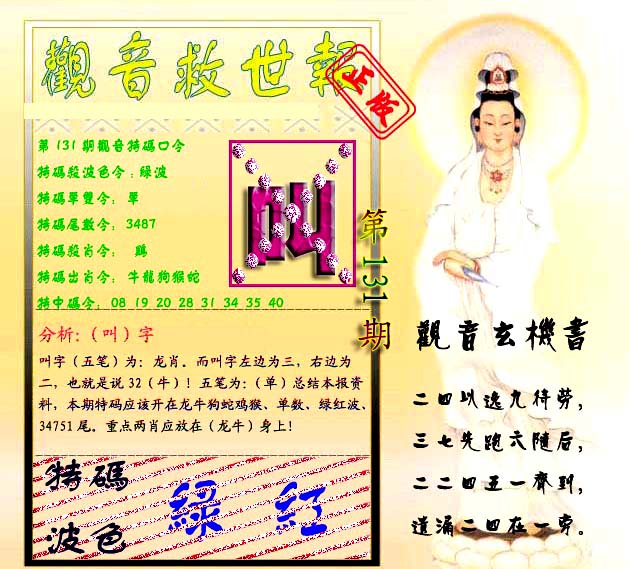 觀音救世報
正版
第131期觀音特碼口令
特碼殺波色令：綠波
特碼單雙令：單
特碼尾數令：3487
特碼殺肖令：鷄
特碼出肖令：牛龍狗猴蛇
特中碼令：08 19 20 28 31 34 35 40
叫
第131期
分析：（叫）字
叫字（五笔）为：龙肖。而叫字左边为三，右边为
二，也就是说32（牛）！五笔为：（单）总结本报资
料，本期特码应该开在龙牛狗蛇鸡猴、单数、绿红波、
34751尾。重点两肖应放在（龙牛）身上！
特碼
波色
綠 紅
觀音玄機書
二四以逸九待劳，
三七先跑六随后，
二二四五一齊到，
遺漏二四在一旁。